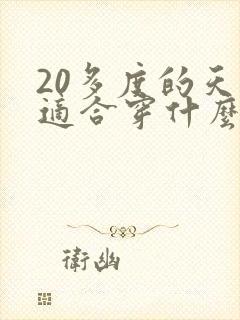 20多度的天
適合穿什麼
衛幽